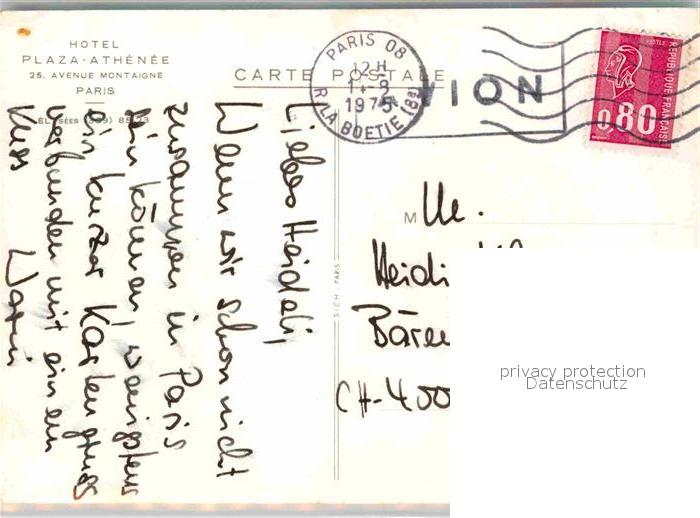 HOTEL
PLAZA-ATHÉNÉE
25, AVENUE MONTAIGNE
PARIS
ÉLYSÉES (359) 85-23
CARTE POSTALE
PARIS 08
12H
1-9
1975
R. LA BOETIE (8e)
AVION
POSTES
REPUBLIQUE FRANÇAISE
0,80
Liebes Heideli,
Wenn wir schon nicht
zusammen in Paris
sein können, wenigstens
ein kurzer Kartengruss
verbunden mit einem
Kuss
SICH - PARIS
M
Heidi
CH-400
privacy protection
Datenschutz